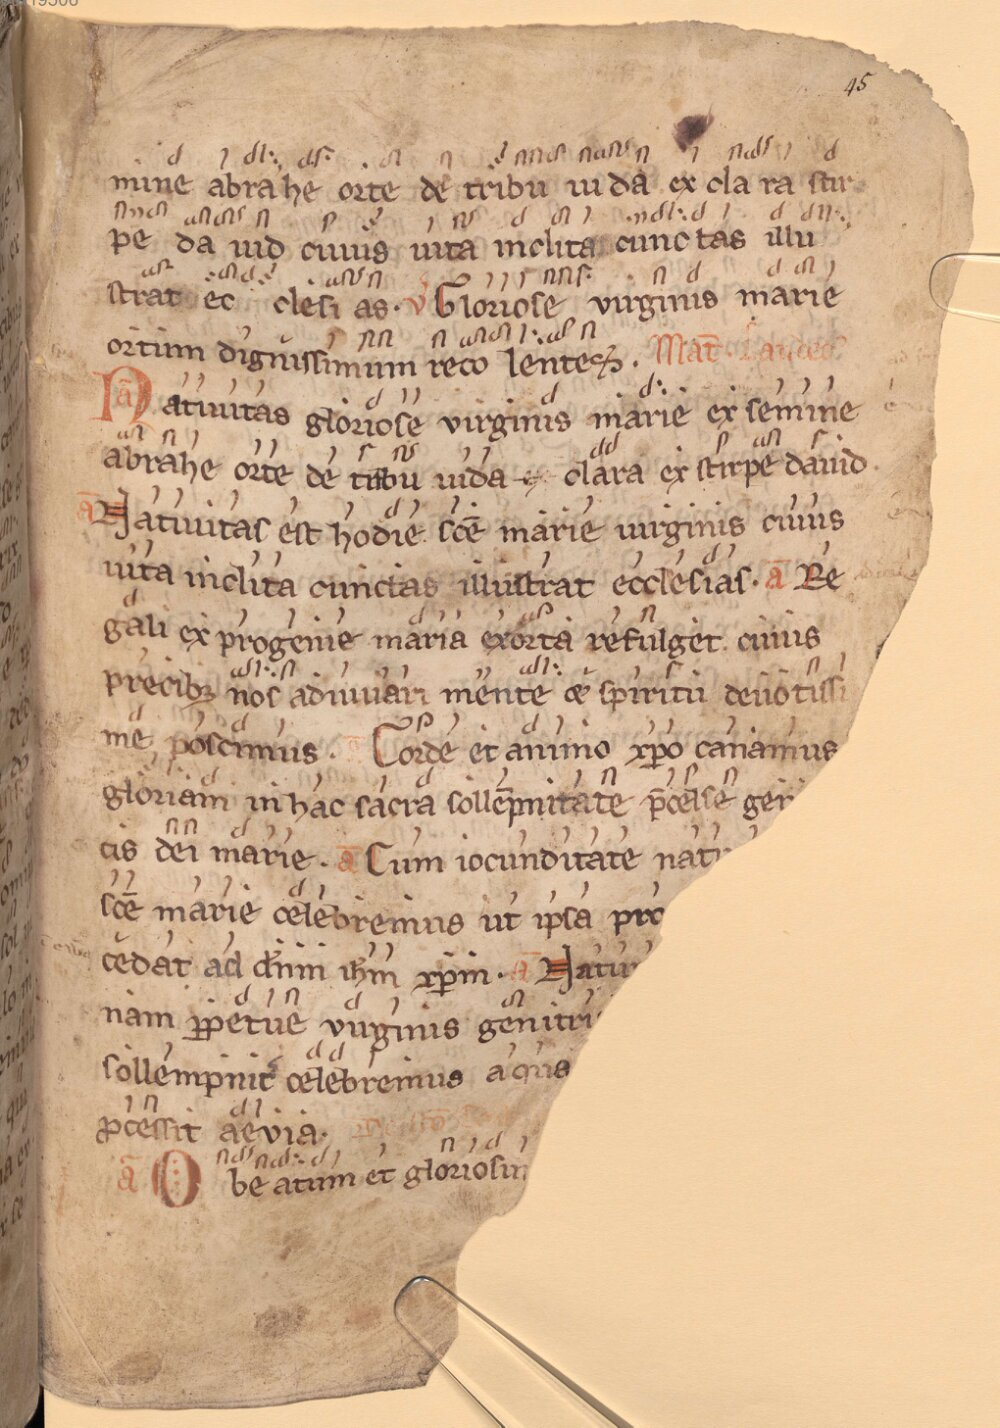 45
mine abrahe orte de tribu iuda ex cla ra stir
pe da uid cuius uita inclita cunc tas illu
strat ec clesi as. v Gloriose virginis marie
ortum dignissimum reco lentes. Mat Laudes
a Natiuitas gloriose virginis marie ex semine
abrahe orte de tribu iuda clara ex stirpe dauid.
ā Natiuitas est hodie scē marie uirginis cuius
uita inclita cunctas illustrat ecclesias. ā Re
gali ex progenie maria exorta refulget cuius
precibꝫ nos adiuuari mente et spiritu deuotissi
me poscimus. Corde et animo xp̄o canamus
gloriam in hac sacra sollēpnitate p̄celse geni
cis dei marie. ā Cum iocunditate natiu
scē marie celebremus ut ipsa pro
cedat ad dn̄m ih̄m xp̄m. ā Natiui
sollempnit celebremus a quis
ꝓcessit aevia.
ā O be atum et gloriosum